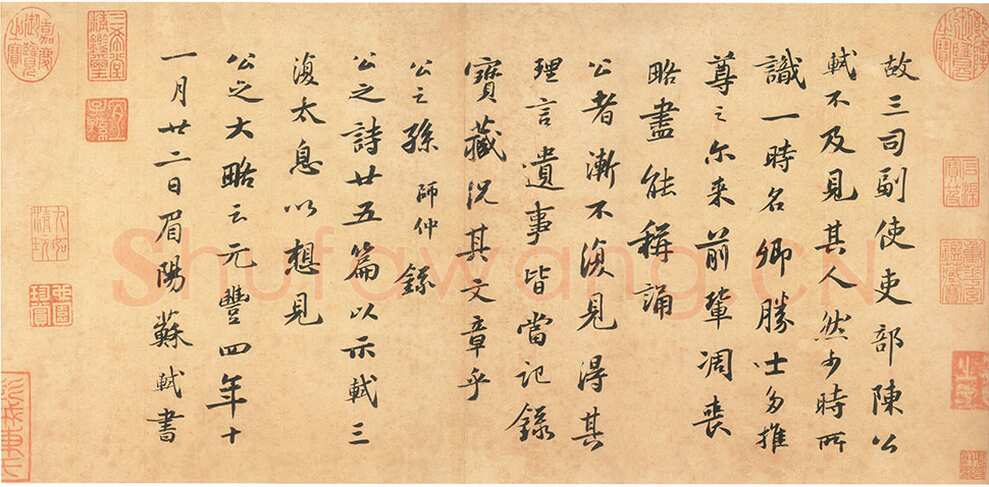 故三司副使吏部陳公
軾不及見其人然少時所
識一時名卿勝士多推
尊之尓来前輩凋喪
略盡能稱誦
公者漸不復見得其
理言遺事皆當記錄
寶藏況其文章乎
公之孫師仲錄
公之詩廿五篇以示軾三
復太息以想見
公之大略云元豐四年十
一月廿二日眉陽蘇軾書
嘉慶御覽之寶
三希堂精鑑璽
宜子孫
乾隆御覽之寶
Shufawang.CN